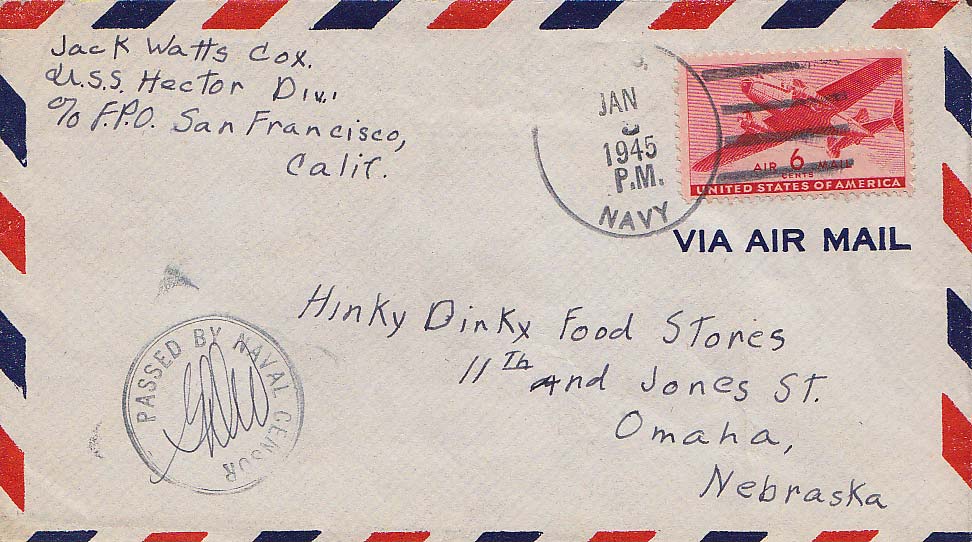 Jack Watts Cox.
U.S.S. Hector Div.
c/o F.P.O. San Francisco,
Calif.
JAN
1945
P.M.
NAVY
AIR 6 MAIL
CENTS
UNITED STATES OF AMERICA
VIA AIR MAIL
Hinky Dinky Food Stores
11th and Jones St.
Omaha,
Nebraska
PASSED BY NAVAL CENSOR